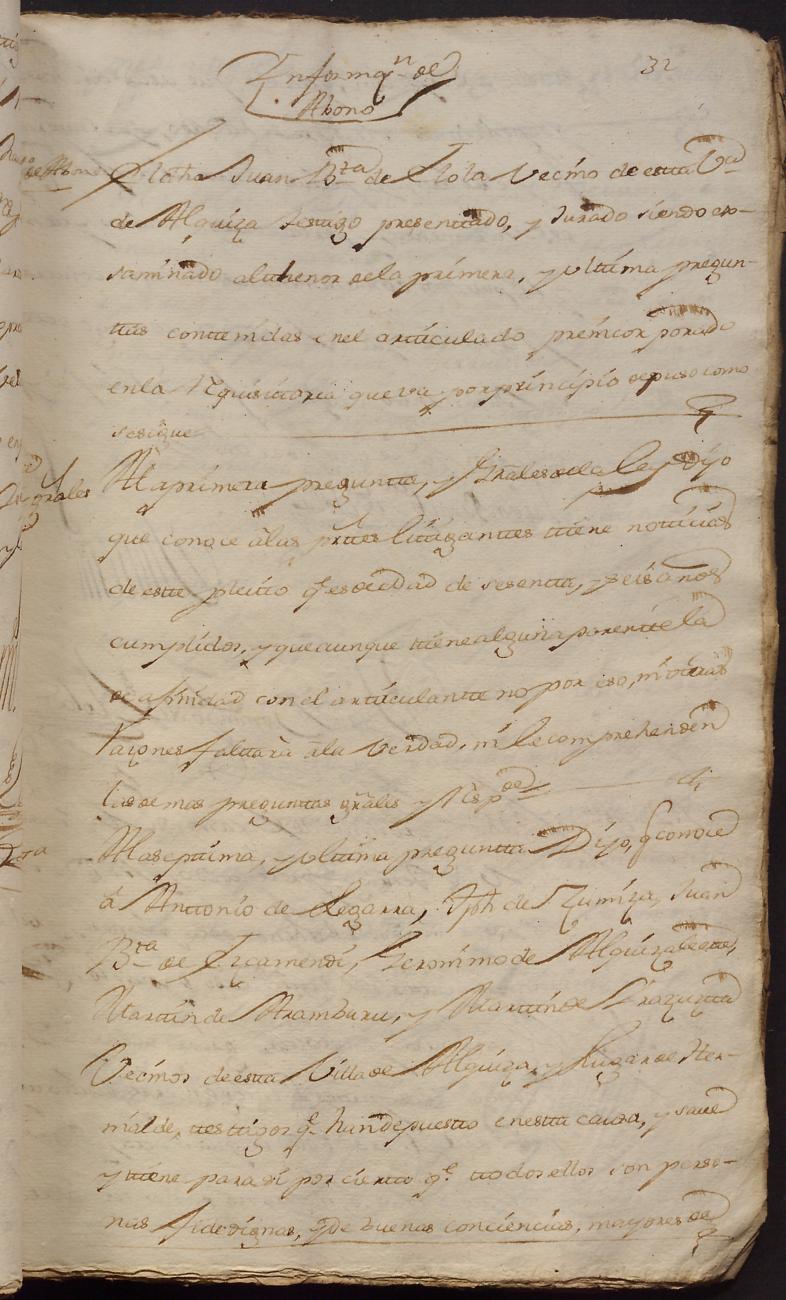 32
Informaz.n de
Abono
El dho Juan Bta de Elola Vecino de esta Va
de Alquiza testigo presentado, y Jurado siendo ex-
saminado al thenor de la primera, y ultima pregun-
tas contenidas en el articulado preincorporado
en la Requisitoria que va por principio depuso como
se sigue
Grales
A la primera pregunta, y Grales de la Ley Dijo
que conoce a las partes litigantes tiene noticias
de este pleito q es de edad de sesenta, y seis años
cumplidos, y que aunque tiene alguna parentela
de afinidad con el articulante no por eso, ni otras
Razones faltara a la Verdad, ni le comprehenden
las demas preguntas grales y Respde
A la septima, y ultima pregunta Dijo, q conoce
a Anttonio de Legarra, Jph de Yzumiza, Juan
Bta de Ercamendi, Geronimo de Alquizalete,
Martin de Aramburu, y Martin de Yrazusta
Vecinos de esta Villa de Alquiza, y Lugar de Her-
nialde, testigos q.e han depuesto en esta causa, y save
y tiene para si por cierto q.e todos ellos son perso-
nas fidedignas, y de buenas conciencias, mayores de